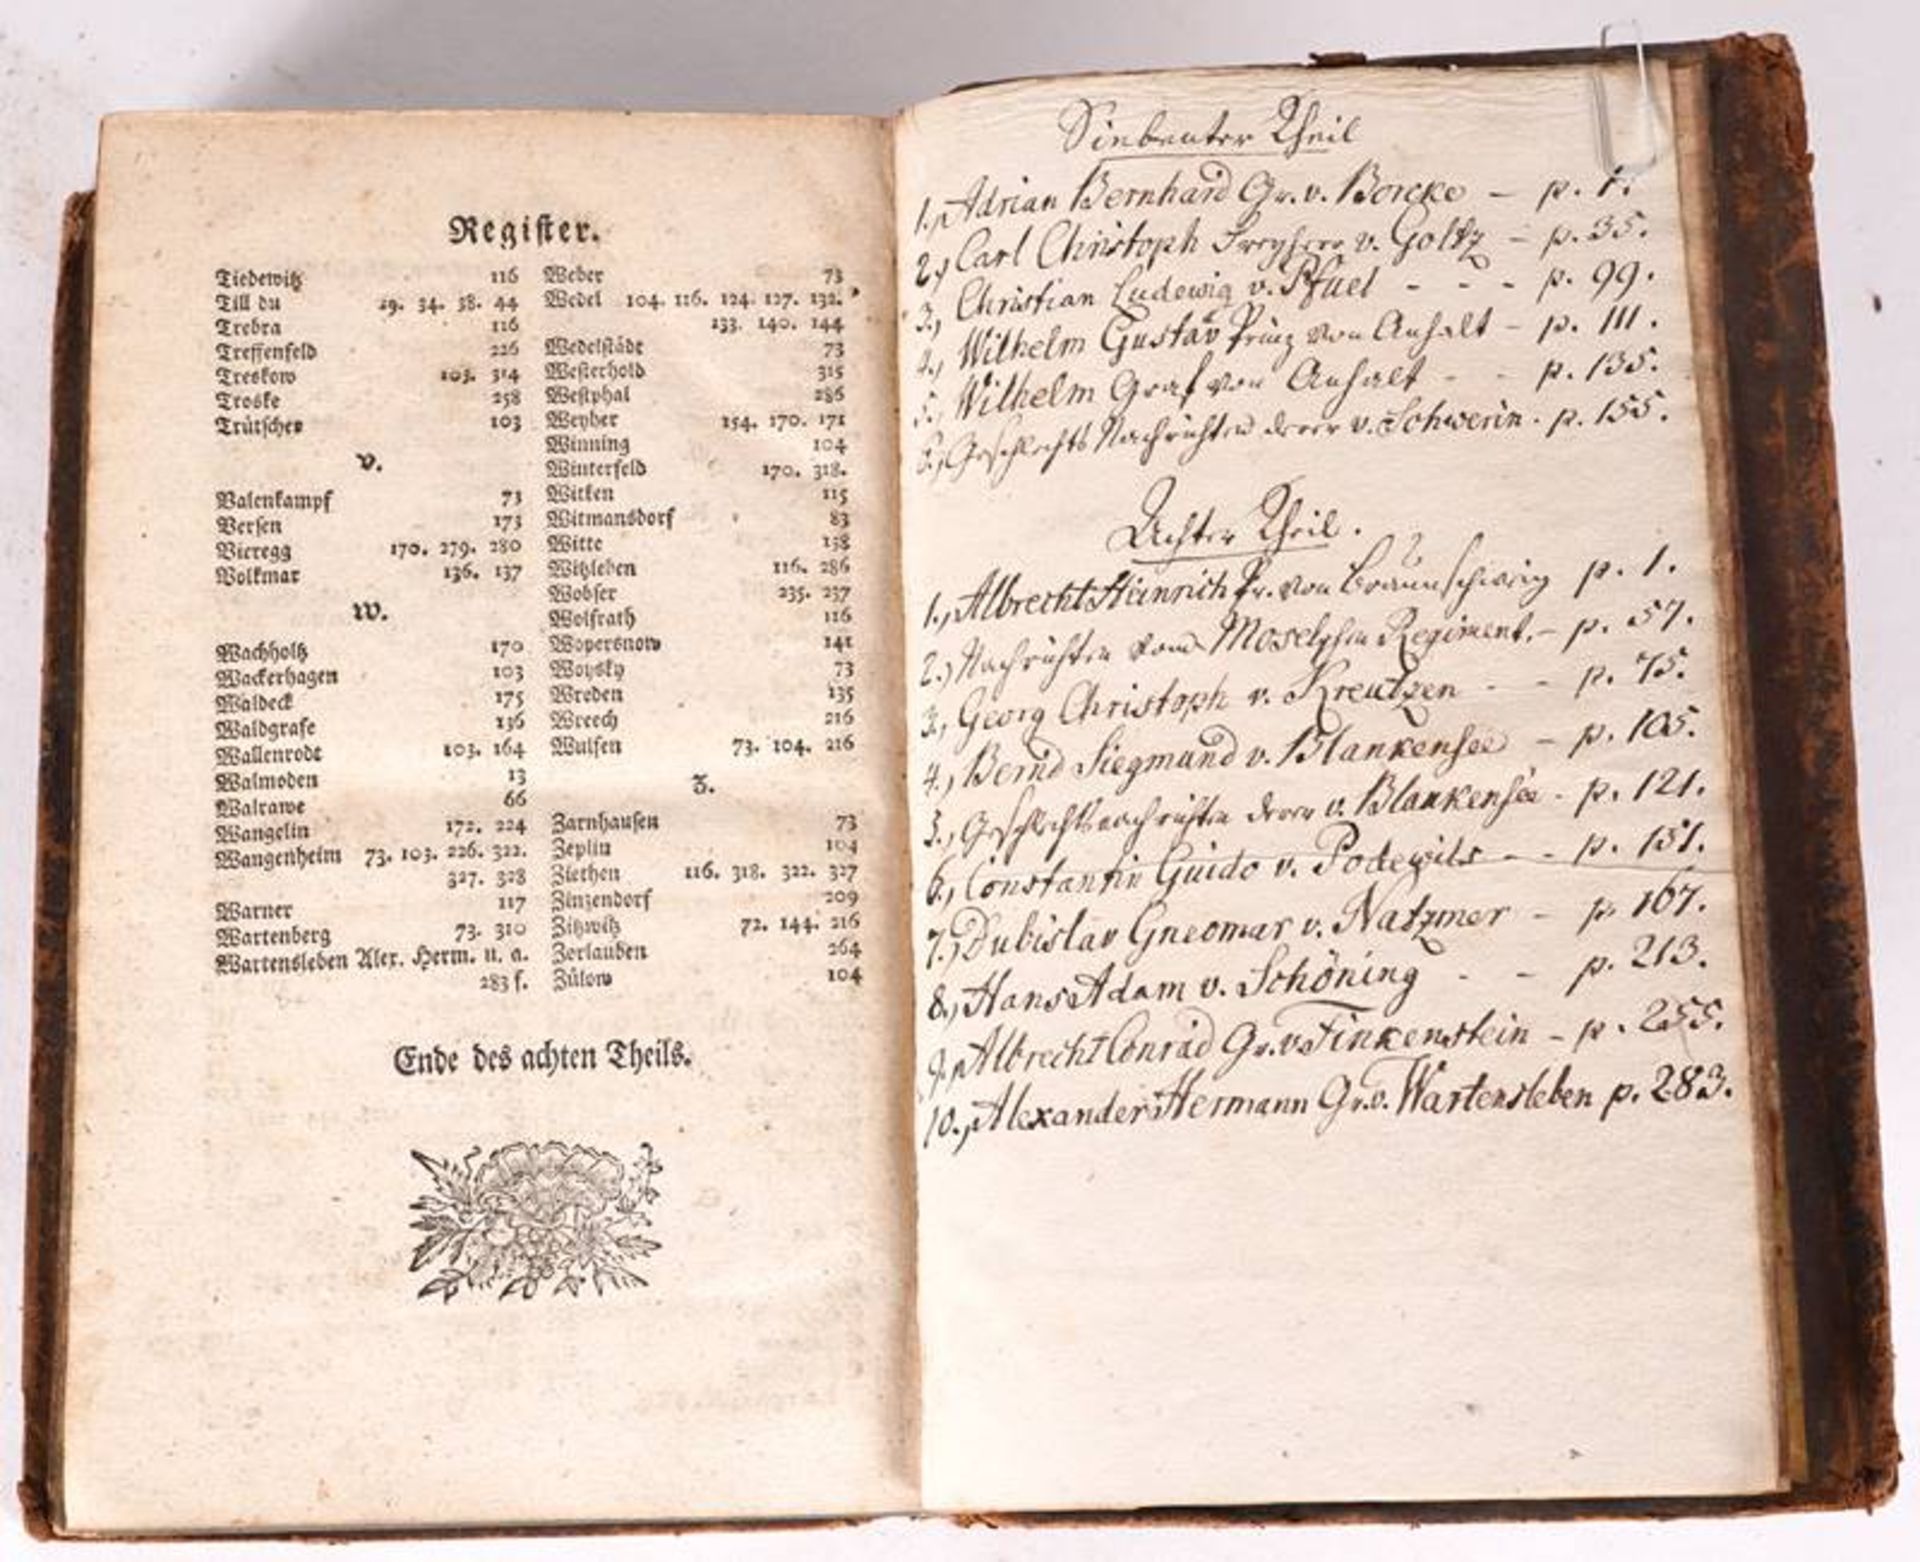 Register.
Tiedewitz 116
Till du 29. 34. 38. 44
Trebra 116
Treffenfeld 226
Treskow 103. 314
Troske 258
Trütschev 103
V.
Valenkampf 73
Versen 173
Vieregg 170. 279. 280
Volkmar 136. 137
W.
Wachholtz 170
Wackerhagen 103
Waldeck 175
Waldgrafe 136
Wallenrodt 103. 164
Walmoden 13
Walrawe 66
Wangelin 172. 224
Wangenheim 73. 103. 226. 322.
327. 328
Warner 117
Wartenberg 73. 310
Wartensleben Alex. Herm. u. a.
283 f.
Weber 73
Wedel 104. 116. 124. 127. 132.
133. 140. 144
Wedelstädt 73
Westerhold 315
Westphal 286
Weyher 154. 170. 171
Winning 104
Winterfeld 170. 318.
Witken 115
Witmansdorf 83
Witte 138
Witzleben 116. 286
Wobser 235. 237
Wolfrath 116
Wopersnow 141
Woysky 73
Wreden 135
Wreech 216
Wulfen 73. 104. 216
Z.
Zarnhausen 73
Zeplin 104
Ziethen 116. 318. 322. 327
Zinzendorf 209
Zitzwitz 72. 144. 216
Zorlauben 264
Zülow 104
Ende des achten Theils.
Siebenter Theil
1., Adrian Bernhard Gr. v. Borcke – p. 1.
2., Carl Christoph Freyherr v. Goltz – p. 35.
3., Christian Ludewig v. Pfuel - - - p. 99.
4., Wilhelm Gustav Prinz von Anhalt – p. 111.
5., Wilhelm Graf von Anhalt - - p. 135.
6., Geschlechts Nachrichten derer v. Schwerin. p. 155.
Achter Theil.
1., Albrecht Heinrich Pr. von Braunschweig p. 1.
2., Nachrichten vom Moselschen Regiment. – p. 57.
3., Georg Christoph v. Kreutzen - - p. 75.
4., Bernd Siegmund v. Blankensee – p. 105.
5., Geschlechtsnachrichten derer v. Blankensee - p. 121.
6., Constantin Guido v. Podewils - - p. 151.
7., Dubislav Gneomar v. Natzmer – p. 167.
8., Hans Adam v. Schöning - - p. 213.
9., Albrecht Conrad Gr. v. Finkenstein – p. 255.
10., Alexander Hermann Gr. v. Wartensleben p. 283.